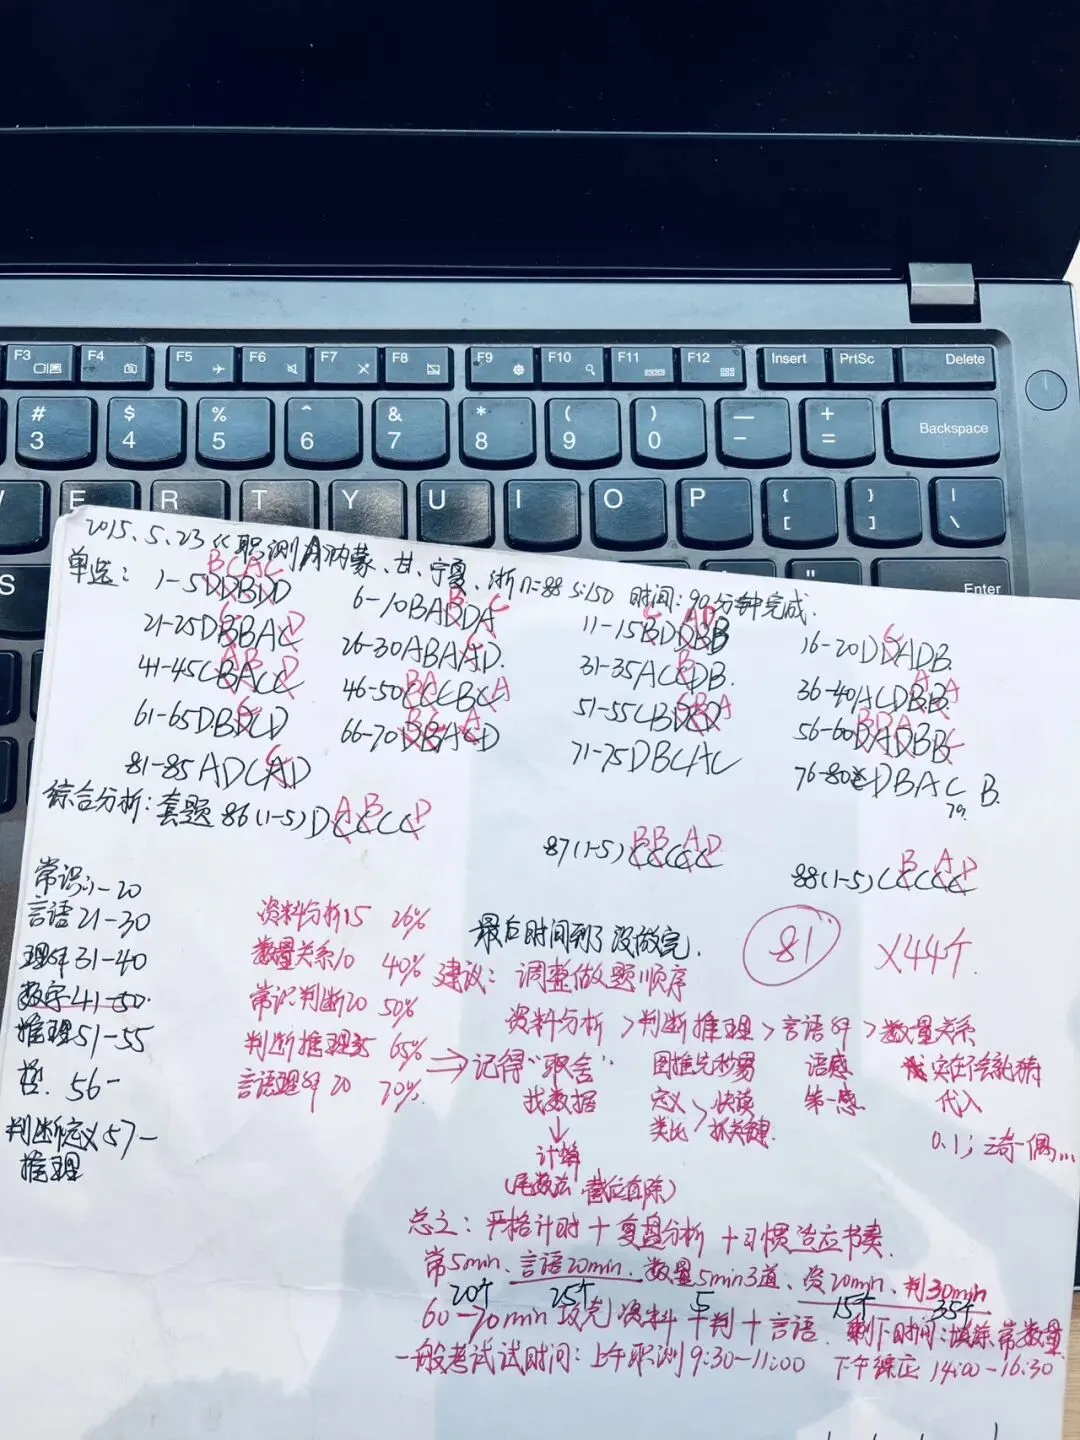 F3 F4 F5 F6 F7 F8 F9 F10 F11 F12 Insert PrtSc Delete
# 3 $ 4 % 5 ^ 6 & 7 * 8 ( 9 ) 0 — - + = Backspace
W E R T Y U I O P { [ } ] | \
S " Enter
2015.5.23《职测 内蒙、甘、宁夏、浙 n=88 S:150 时间:90分钟完成.
BCAC
单选: 1-5DDBDD 6-10BABDA 11-15BDDBB 16-20DDADB.
21-25DBBAC 26-30ABAAD. 31-35ACCDB. 36-40ACDBB.
41-45CBACC 46-50CCCBC 51-55CBDCD 56-60BADBB
61-65DBCCD 66-70DBACD 71-75DBCAC 76-80 DBAC B.
79.
81-85ADCAD
综合分析:套题86(1-5)DCCCC 87(1-5)CCCCC 88(1-5)CCCCC
常识1-20
言语21-30
理解31-40
数字41-50.
推理51-55
56-
判断定义57-
推理
资料分析15 26%
数量关系10 40%
常识判断20 50%
判断推理35 65%
言语理解20 70%.
最后时间到了没做完.
81
X44个.
建议:调整做题顺序
资料分析>判断推理>言语理解>数量关系
⇒记得“取舍” 图推先秒易 语感 实在不会就猜
找数据 定义>快读 第一感 代入
↓ 类比>抓关键. 0.1;奇-偶...
计算
(尾数法.截位直除)
总之:严格计时+复盘分析+习惯适应节奏.
常5min、言语20min、数量5min3道、资20min、判30min
20个 25个 5 15个 35个
60-70min攻克资料+判+言语 剩下时间:填涂常数量.
一般考试试时间:上午职测9:30-11:00 下午综应14:00-16:30